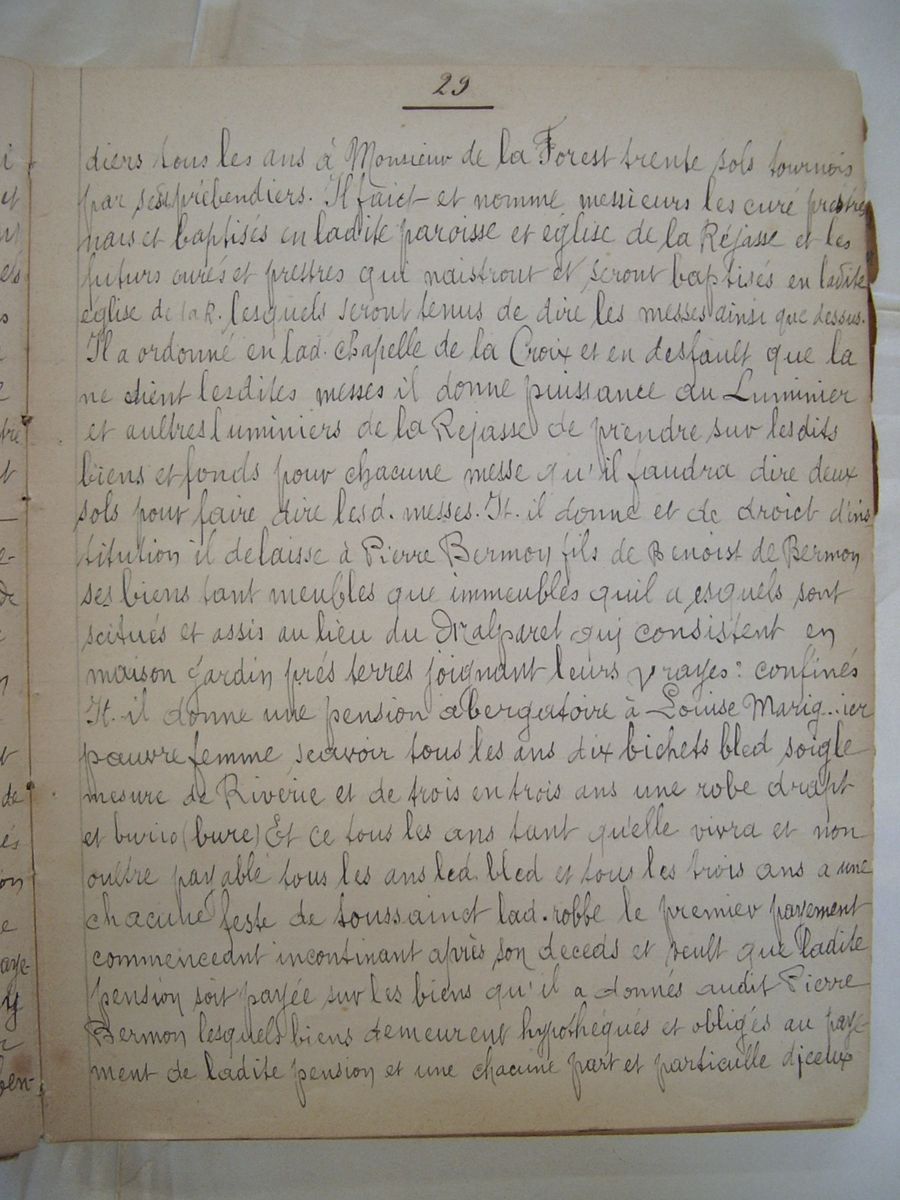 29
diers tous les ans à Monsieur de la Forest trente sols tournois
par sesd prébendiers. Il faict et nomme messieurs les curé prestre
nais et baptisés en ladite paroisse et église de la Réjasse et les
futurs curés et prestres qui naistront et seront baptisés en ladite
église de la R. lesquels seront tenus de dire les messes ainsi que dessus.
Il a ordonné en lad. chapelle de la Croix et en desfault que la
ne dient lesdites messes il donne puissance au Luminier
et aultres luminiers de la Rejasse de prendre sur lesdits
biens et fonds pour chacune messe qu'il faudra dire deux
sols pour faire dire lesd. messes. It. il donne et de droict d'ins
titution il delaisse à Pierre Bermon fils de Benoist de Bermon
ses biens tant meubles que immeubles quil a esquels sont
scitués et assis au lieu du Malparet quj consistent en
maison jardin prés terres joignant leurs vrayes : confinés
It. il donne une pension abergatoire à Louise Marig...ier
pauvre femme scavoir tous les ans dix bichets bled soigle
mesure de Riverie et de trois en trois ans une robe drapt
et (bure) Et ce tous les ans tant qu'elle vivra et non
oultre payable tous les ans led. bled et tous les trois ans a une
chacune feste de toussainct lad. robbe le premier payement
commenceant incontinant après son deceds et veult que ladite
pension soit payée sur les biens qu'il a donnés audit Pierre
Bermon lesquels biens demeurent hypothéqués et obligés au paye
ment de ladite pension et une chacune part et particulle djceux